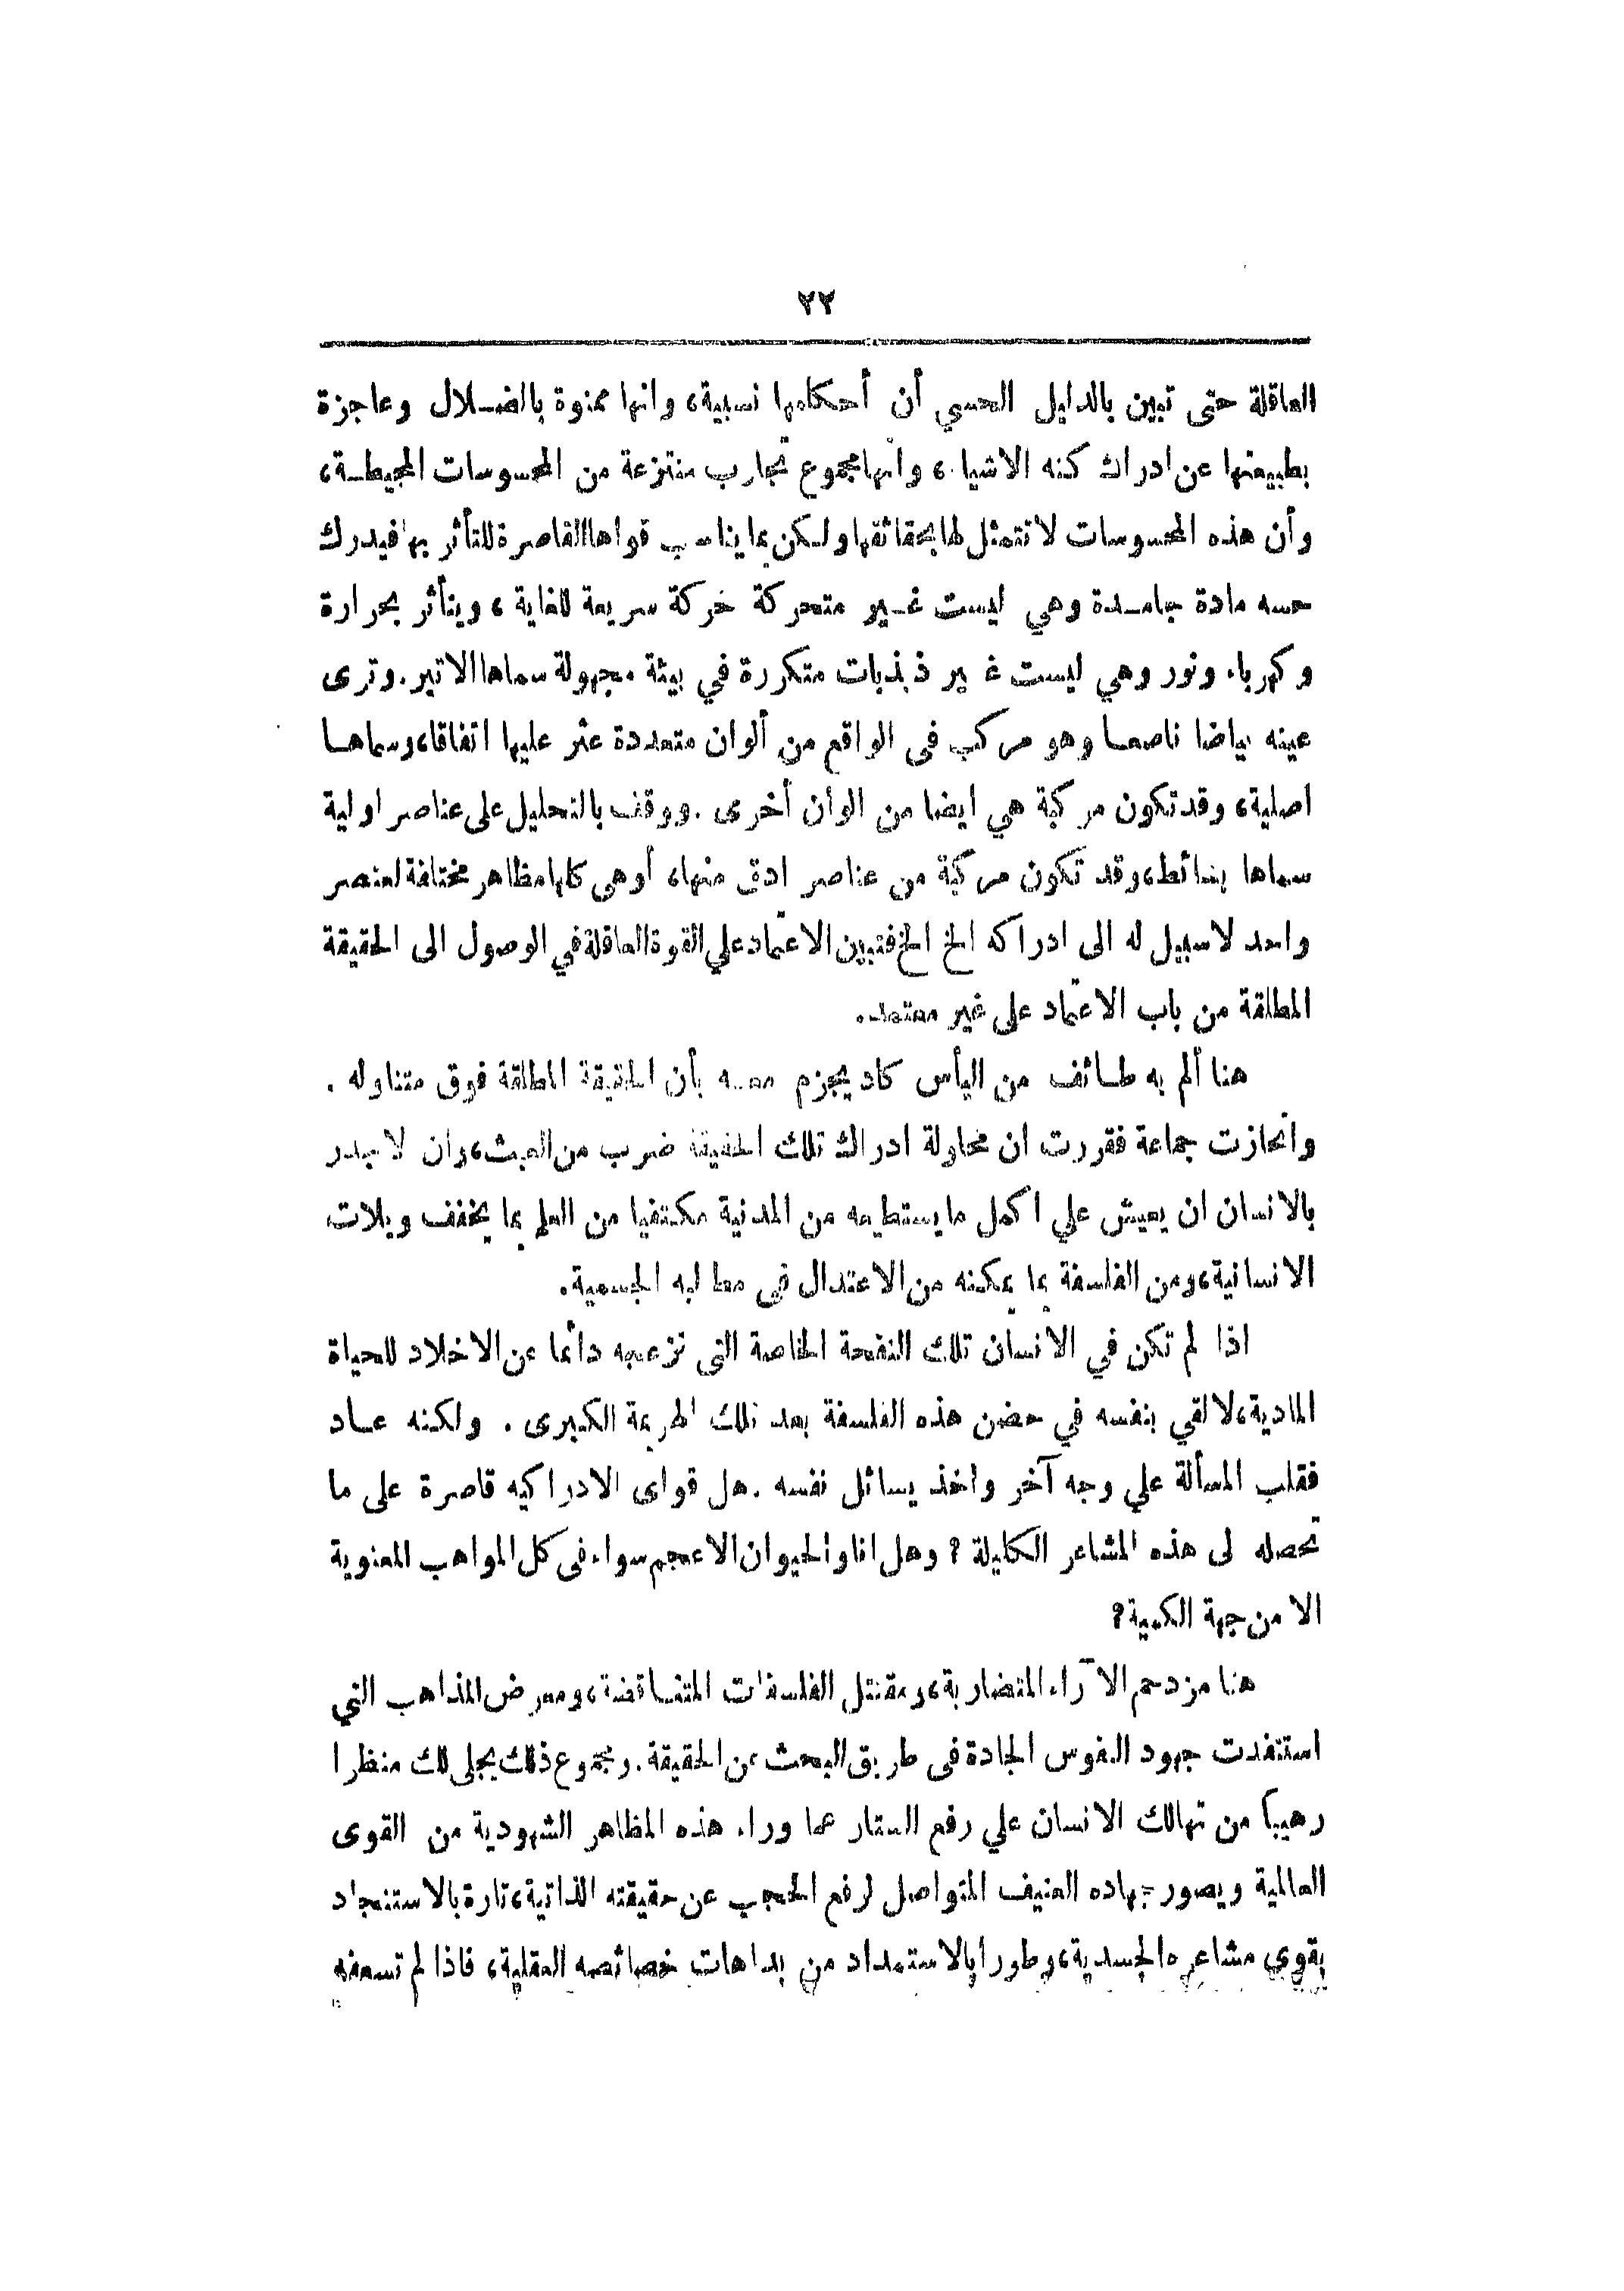 ٢٢
العاقلة حتى تبين بالدليل الحسي أن أحكامها نسبية، وانها ممنوة بالضلال وعاجزة
بطبيعتها عن ادراك كنه الاشياء، وانها مجموع تجارب منتزعة من المحسوسات المحيطة،
وأن هذه المحسوسات لا تتمثل لها بحقائقها ولكن بما يناسب قواها القاصرة للتأثر بها فيدرك
حسه مادة جامدة وهي ليست غير متحركة حركة سريعة للغاية، ويتأثر بحرارة
وكهرباء ونور وهي ليست غير ذبذبات متكررة في بيئة مجهولة سماها الاتير. وترى
عينه بياضا ناصعا وهو مركب فى الواقع من ألوان متعددة عثر عليها اتفاقا، وسماها
اصلية، وقد تكون مركبة هي ايضا من الوان أخرى. ووقف بالتحليل على عناصر اولية
سماها بسائط، وقد تكون مركبة من عناصر ادق منها، أو هي كلها مظاهر مختلفة لعنصر
واحد لا سبيل له الى ادراكه الخ الخ فتبين الاعتماد علي القوة العاقلة في الوصول الى الحقيقة
المطلقة من باب الاعتماد على غير معتمد.
هنا ألم به طائف من اليأس كاد يجزم معه بأن الحقيقة المطلقة فوق متناوله.
وانحازت جماعة فقررت ان محاولة ادراك تلك الحقيقة ضرب من العبث، وان لا جدر
بالانسان ان يعيش علي اكمل ما يستطيعه من المدنية مكتفيا من العلم بما يخفف ويلات
الانسانية، ومن الفلسفة بما يمكنه من الاعتدال في مطالبه الجسمية.
اذا لم تكن في الانسان تلك النفحة الخاصة التى تزعجه دائما عن الاخلاد للحياة
المادية، لالقي بنفسه في حضن هذه الفلسفة بعد تلك الهزيمة الكبرى. ولكنه عاد
فقلب المسألة علي وجه آخر واخذ يسائل نفسه. هل قواى الادراكيه قاصرة على ما
تحصله لى هذه المشاعر الكليلة ؟ وهل انا والحيوان الاعجم سواء فى كل المواهب المعنوية
الا من جهة الكمية؟
هنا مزدحم الآراء المتضاربة، ومقتتل الفلسفات المتناقضة، ومعرض المذاهب التي
استنفدت جهود النفوس الجادة فى طريق البحث عن الحقيقة. ومجموع ذلك يجلى لك منظرا
رهيباً من تهالك الانسان علي رفع الستار عما وراء هذه المظاهر الشهودية من القوى
العالمية ويصور جهاده العنيف المتواصل لرفع الحجب عن حقيقته الذاتية، تارة بالاستنجاد
بقوي مشاعره الجسدية، وطورا بالاستمداد من بداهات خصائصه العقلية، فاذا لم تسعفه